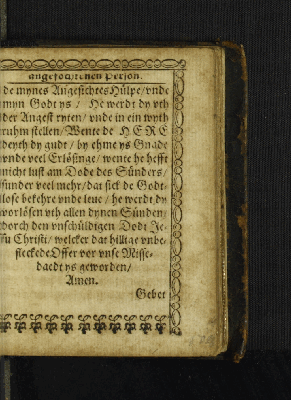 angefochtenen Person.
de mynes Angesichtes Hülpe/vnde
myn Godt ys / He werdt dy vth
der Angest ryten / vnde in ein wyth
ruhm stellen/Wente de HERE
deyth dy gudt / by ehme ys Gnade
vnde veel Erlösinge/ wente he hefft
nicht lust am Dode des Sünders/
sunder veel mehr/dat sick de Godt-
lose bekehre vnde leue / he werdt dy
vorlösen vth allen dynen Sünden/
dorch den vnschüldigen Dodt Je-
su Christi/ welcker dat billige vnbe-
fleckede Offer vor vnse Misse-
daedt ys geworden/
Amen.
Gebet